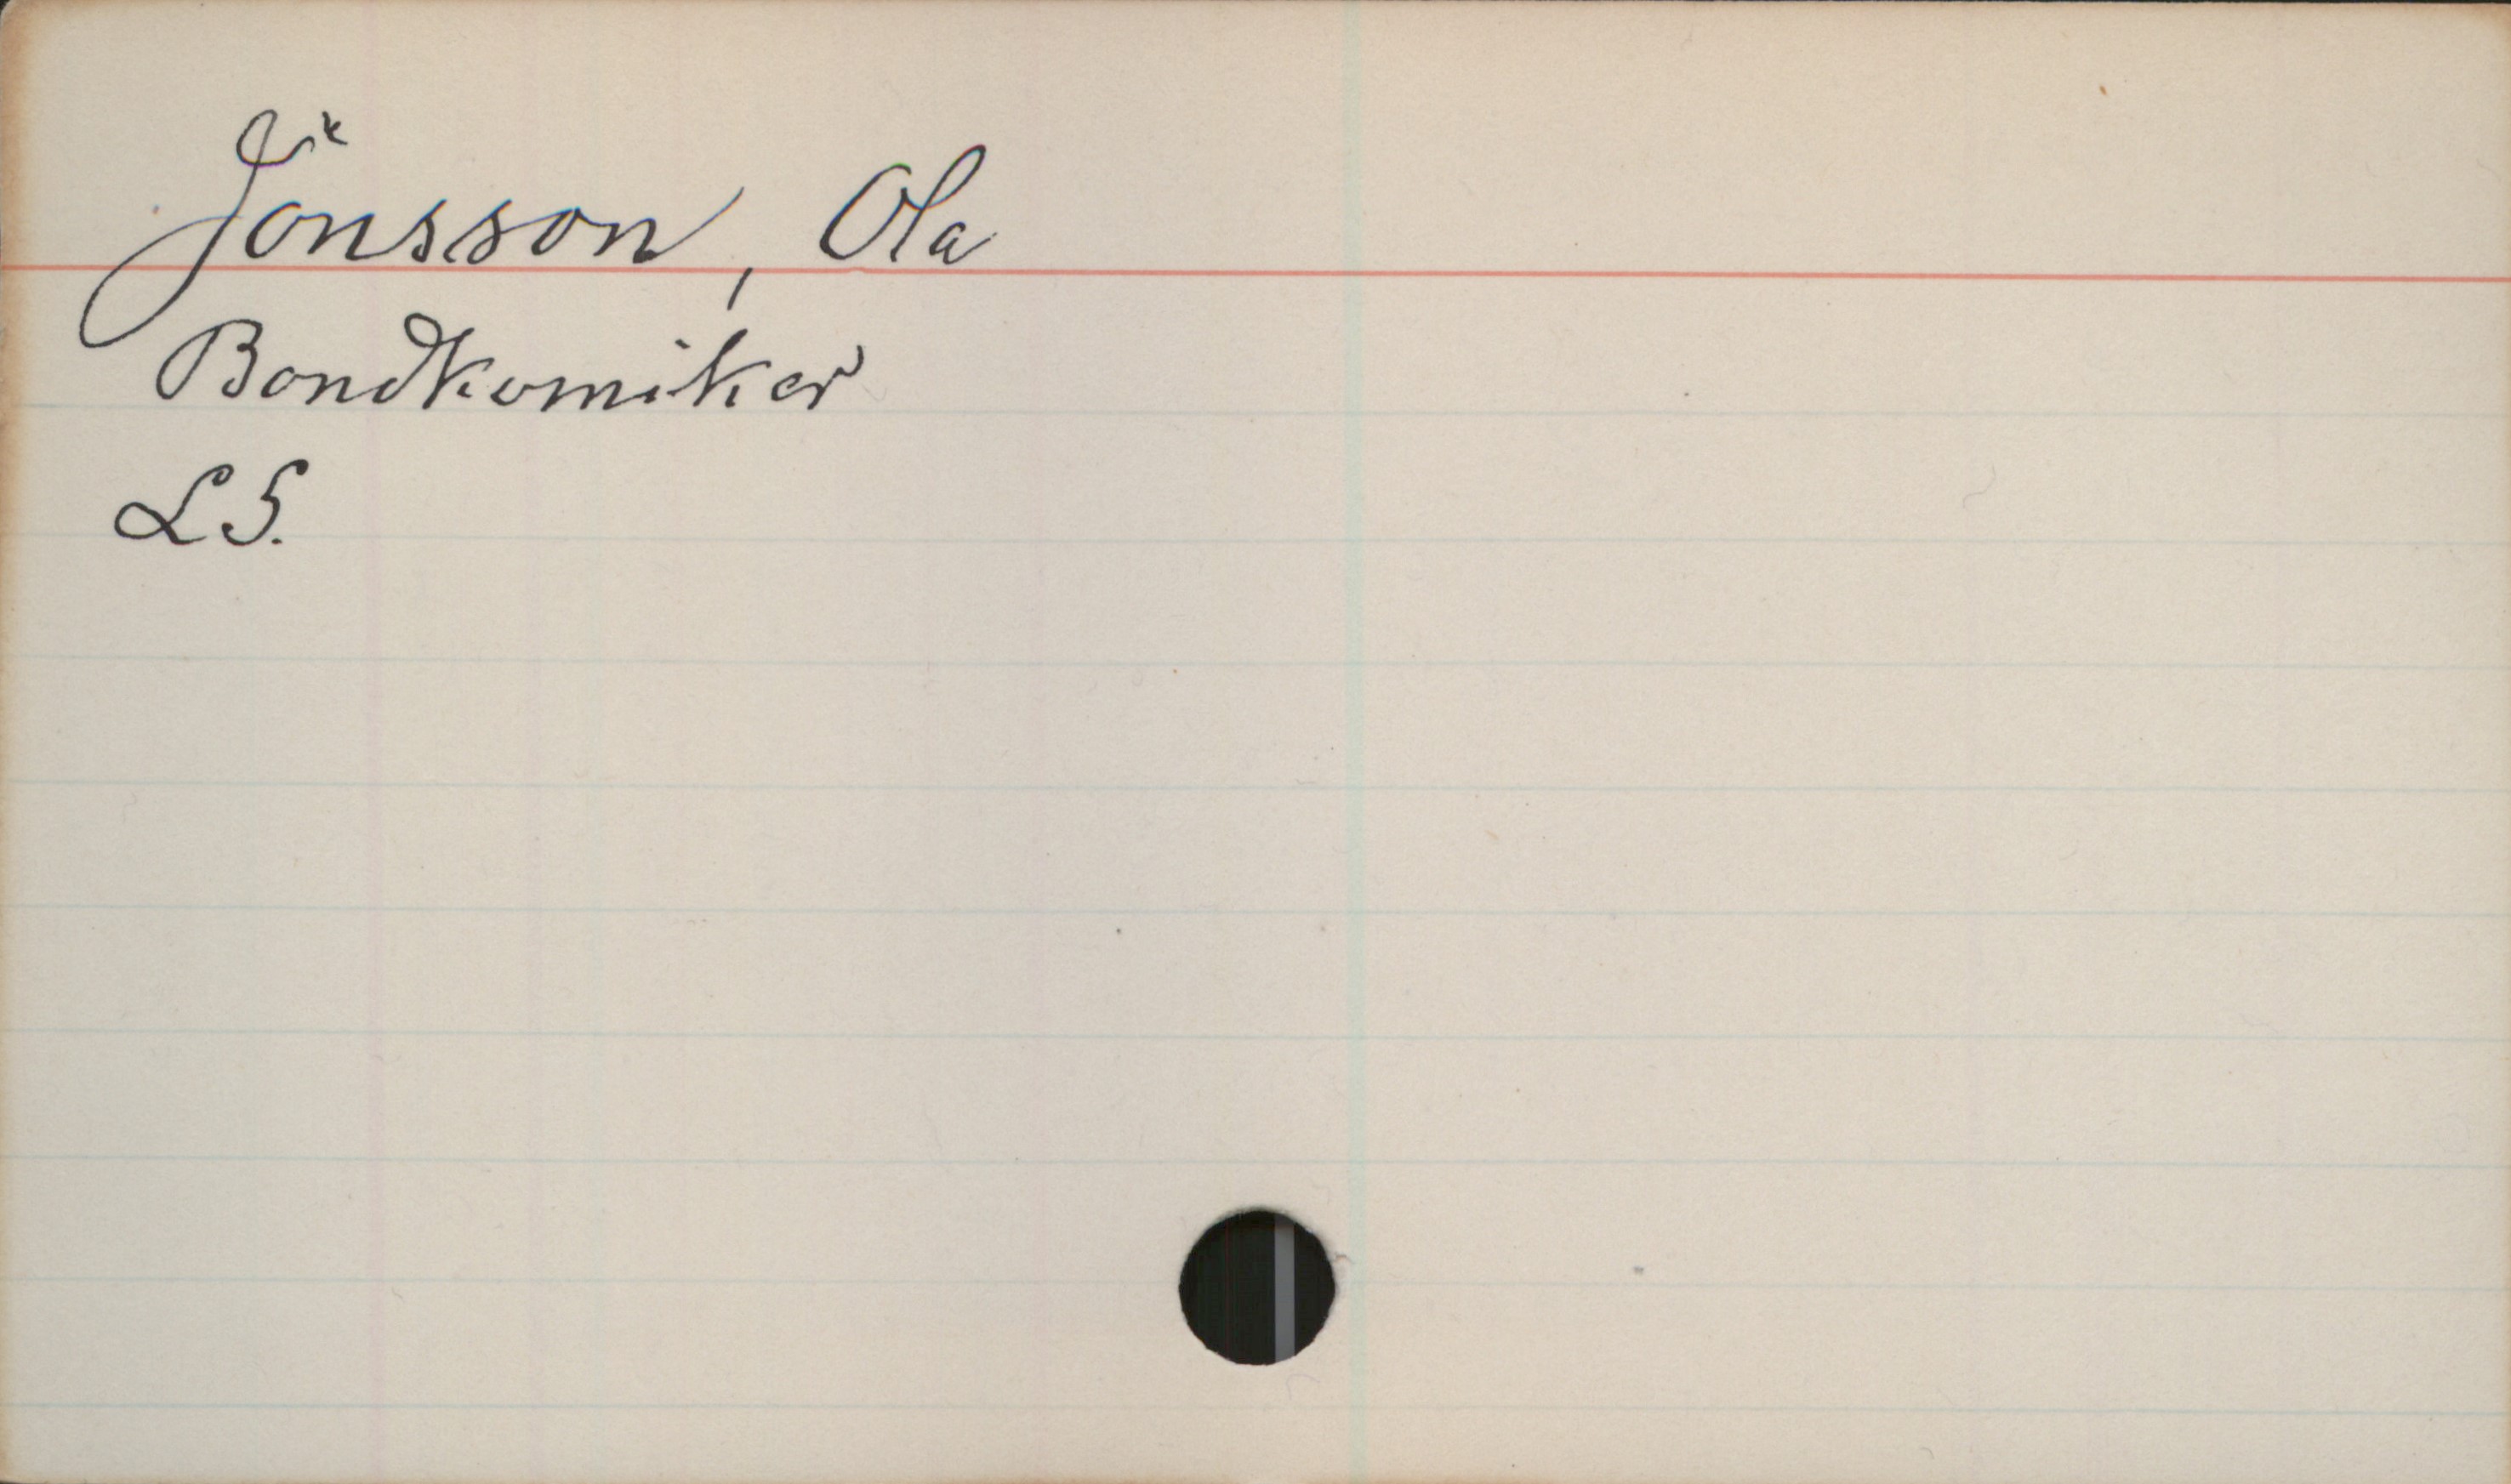 Jönsson, Ola
Bondkomiker
LS.